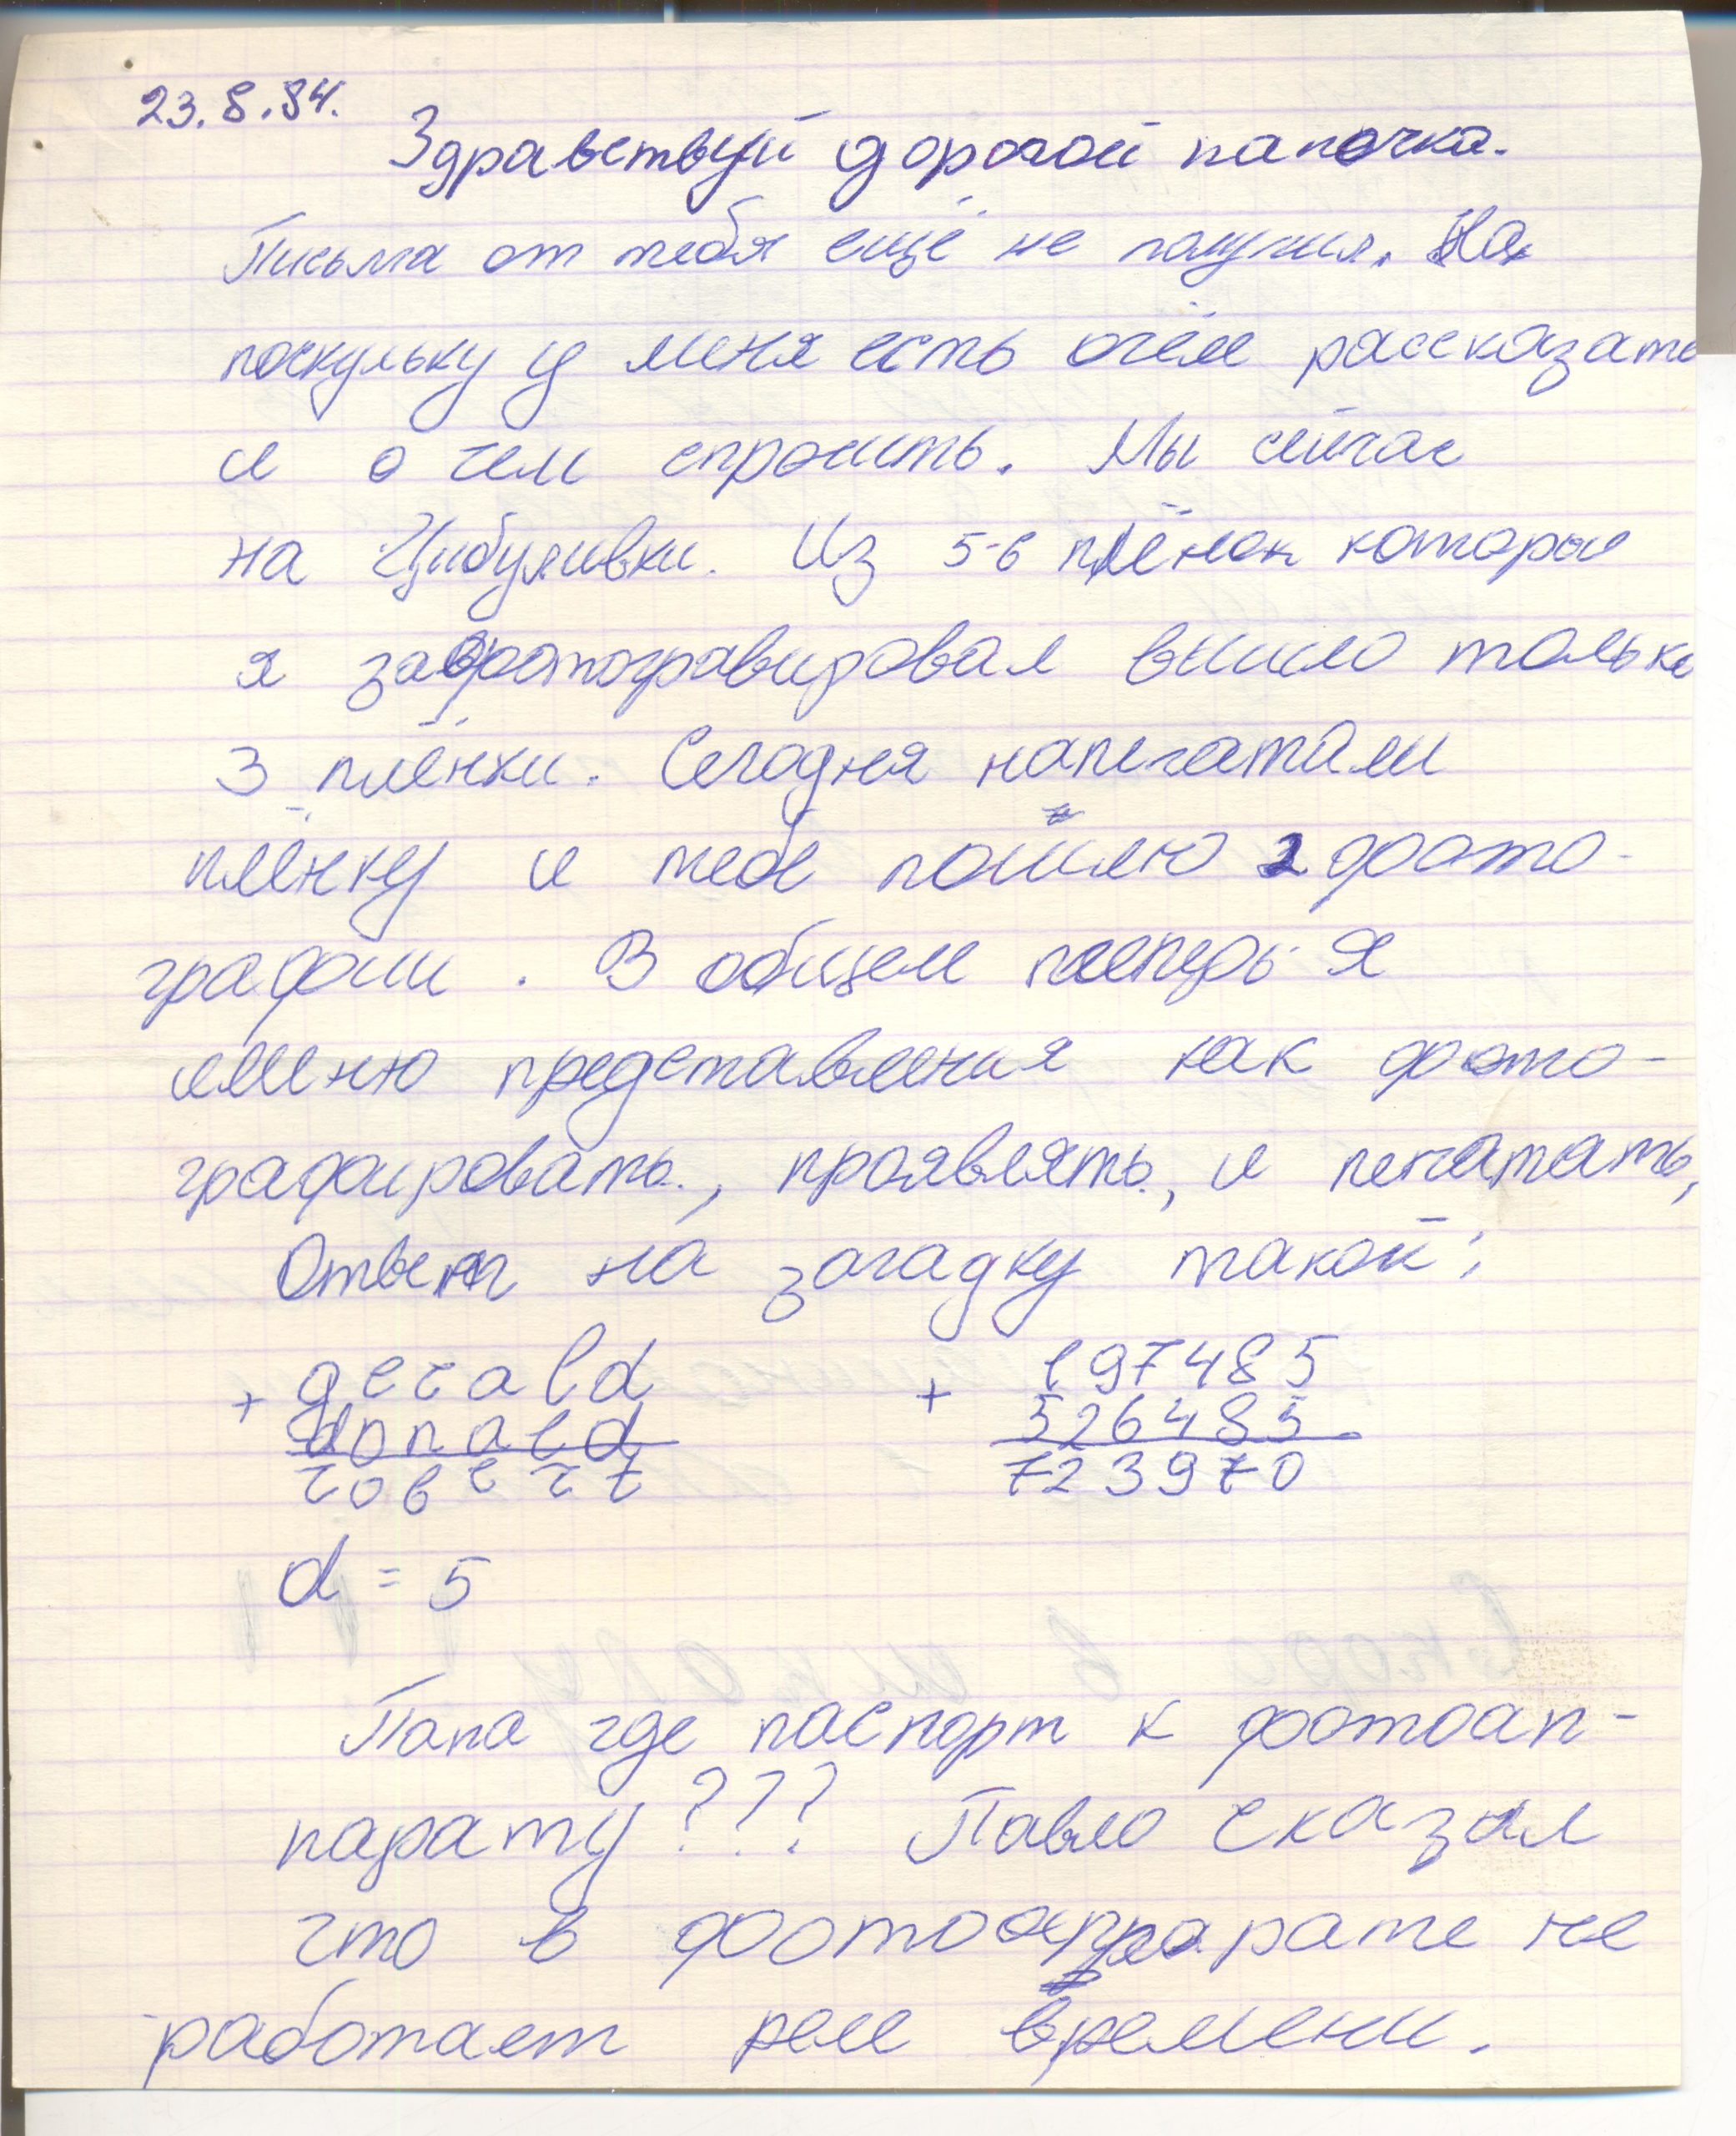 23.8.84.
Здравствуй дорогой папочка.
Письма от тебя ещё не получил. На
поскульку у меня есть очём рассказать
и о чем спросить. Мы сейчас
на Цибуливки. Из 5-6 плёнок которые
я зафотогравировал вышло только
3 плёнки. Сегодня напечатали
плёнку и тебе пошлю 2 фото-
графии. В общем теперь я
имению представления как фото-
графировать, проявлять, и печатать,
Ответ на загадку такой:
+ gerald + 197485
donald 526485
robert 723970
d = 5
Папа где паспорт к фотоап-
парату??? Павло сказал
что в фотоаппарате не
работает реле времени.